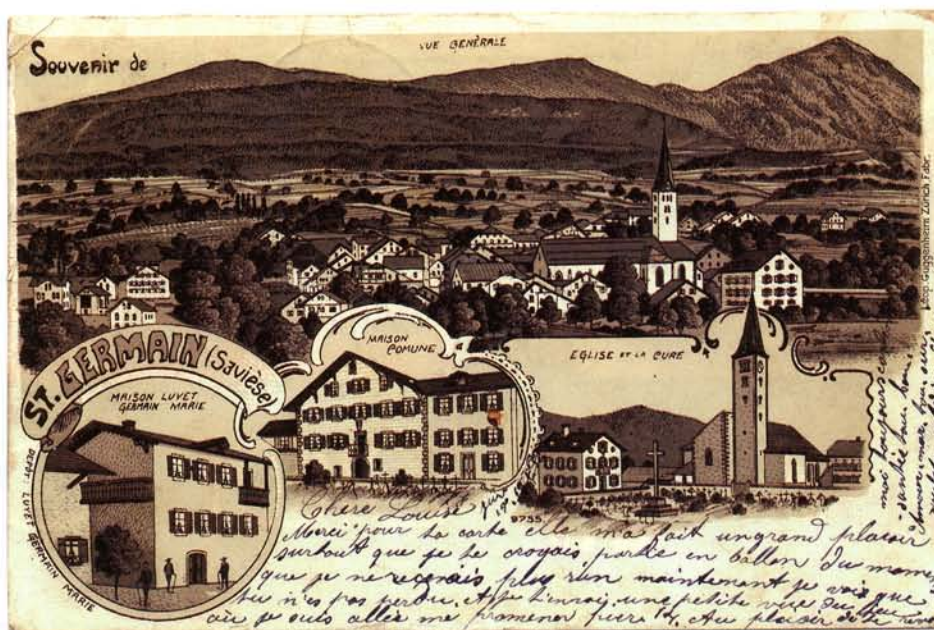 Souvenir de
VUE GÉNÉRALE
ST. GERMAIN (Savièse)
MAISON LUVET
GERMAIN MARIE
DEPOT: LUVET GERMAIN MARIE
MAISON
COMUNE
EGLISE ET LA CURE
9755.
Imp. Guggenheim Zürich Fabr.
Chère Louise
Merci pour ta carte elle m'a fait un grand plaisir
surtout que je te croyais partie en ballon Du moment
que je ne recevais plus rien maintenant je vois que
tu n'es pas perdu. Je t'envoie une petite vue du lieu
où je suis allée me promener Au plaisir de te